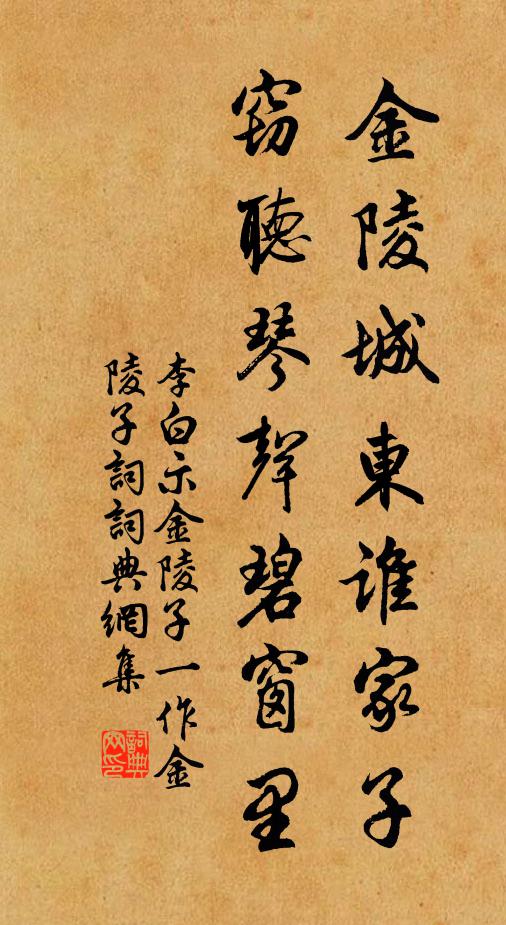 金陵城東誰家子
竊聽琴聲碧窗里
李白示金陵子一作金
陵子詞詞典網集
詞典网印